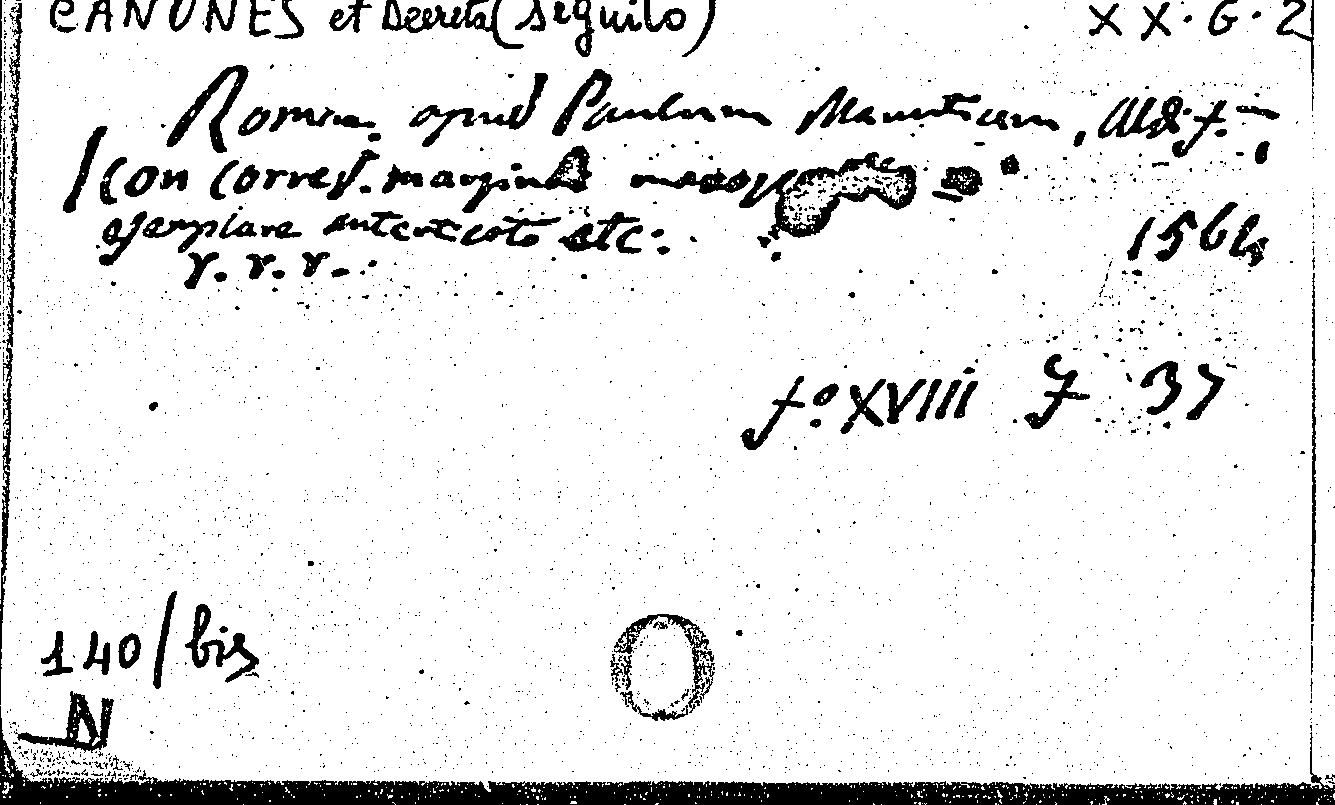 CANONES et Decreta (seguito) XX. G. 2
Romae. apud Paulum Manutium, Aldi f.,
(con corres. marginal
esemplare autenticato etc:. 1564
r. r. r.
f.º XVIII F 37
140/bis
N